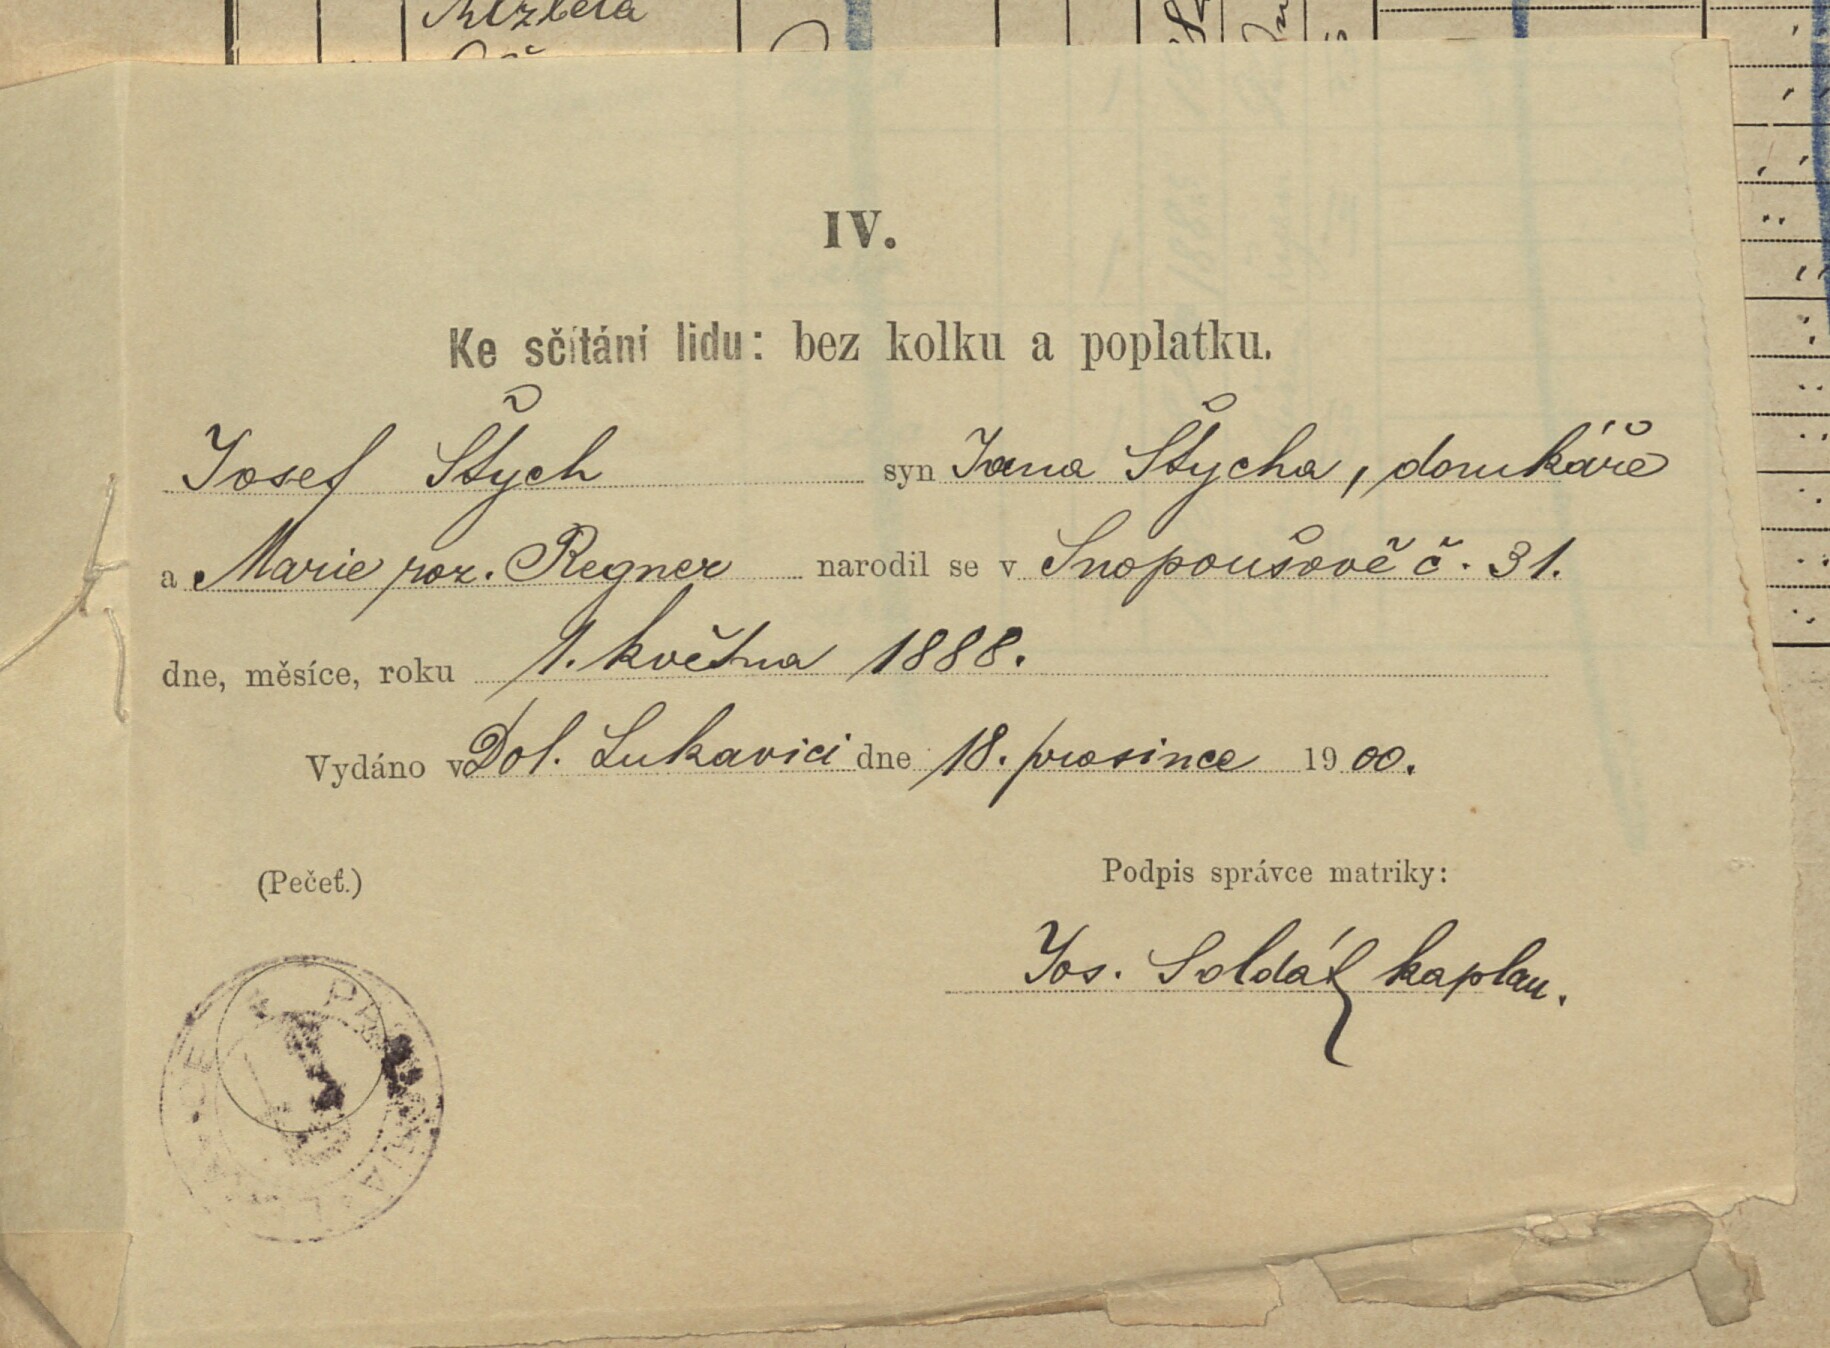 Alžběta
IV.
Ke sčítání lidu: bez kolku a poplatku.
Josef Štých syn Jana Štycha, domkáře
a Marie roz. Regner narodil se v Snopoušově č. 31.
dne, měsíce, roku 1. května 1888.
Vydáno v Dol. Lukavici dne 18. prosince 1900.
(Pečeť.) Podpis správce matriky:
Jos. Soldát kaplan.